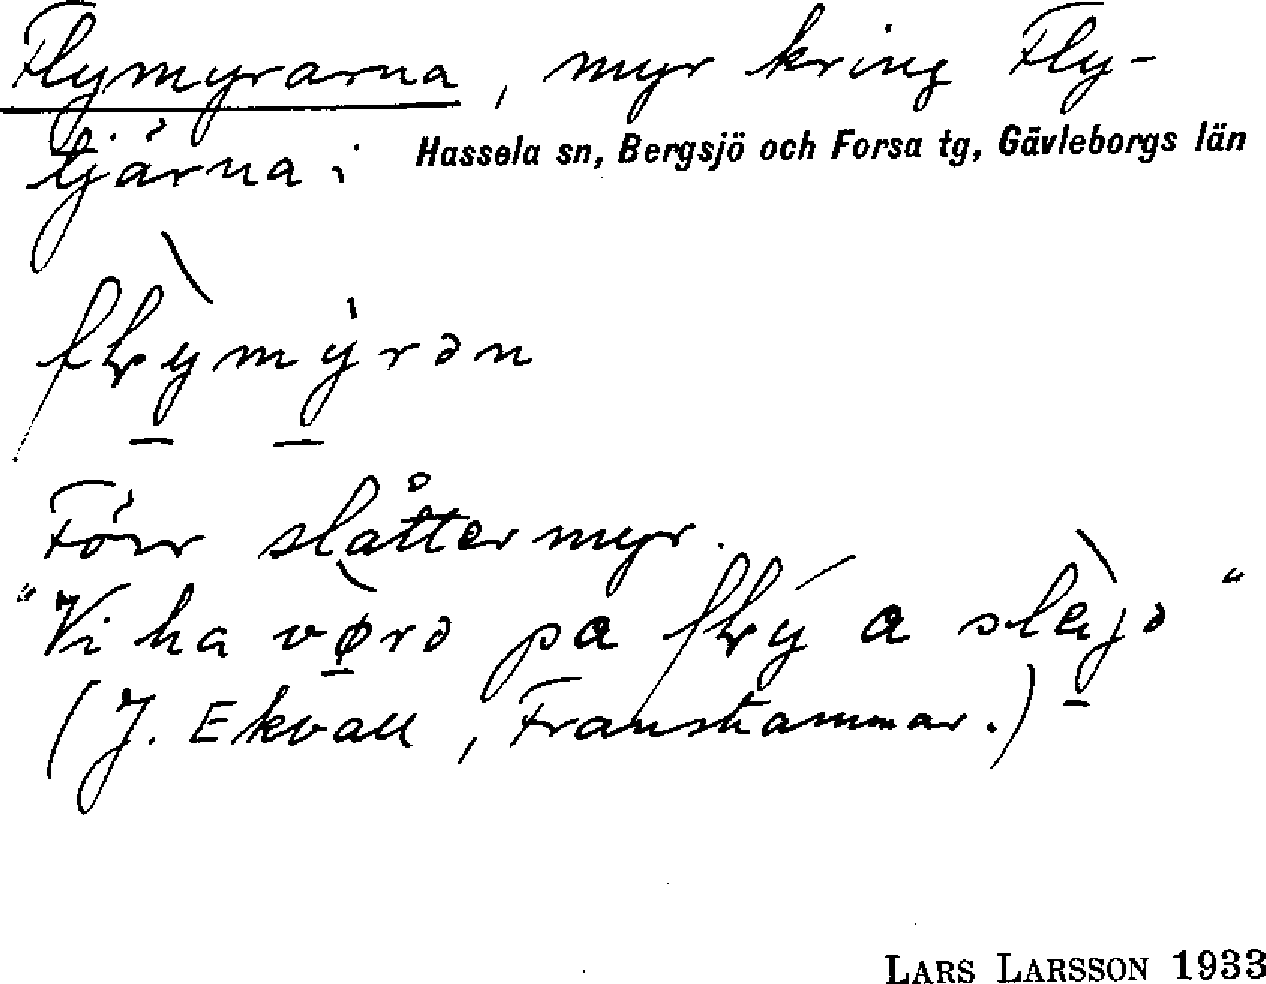 Flymyrarna, myr kring Fly-
tjärna i Hassela sn, Bergsjö och Forsa tg, Gävleborgs län
flỳmýrən
Förr slåttermyr.
"Vi ha vørə pa flý a slejə"
(J. Ekvall, Franshammar.)
LARS LARSSON 1933